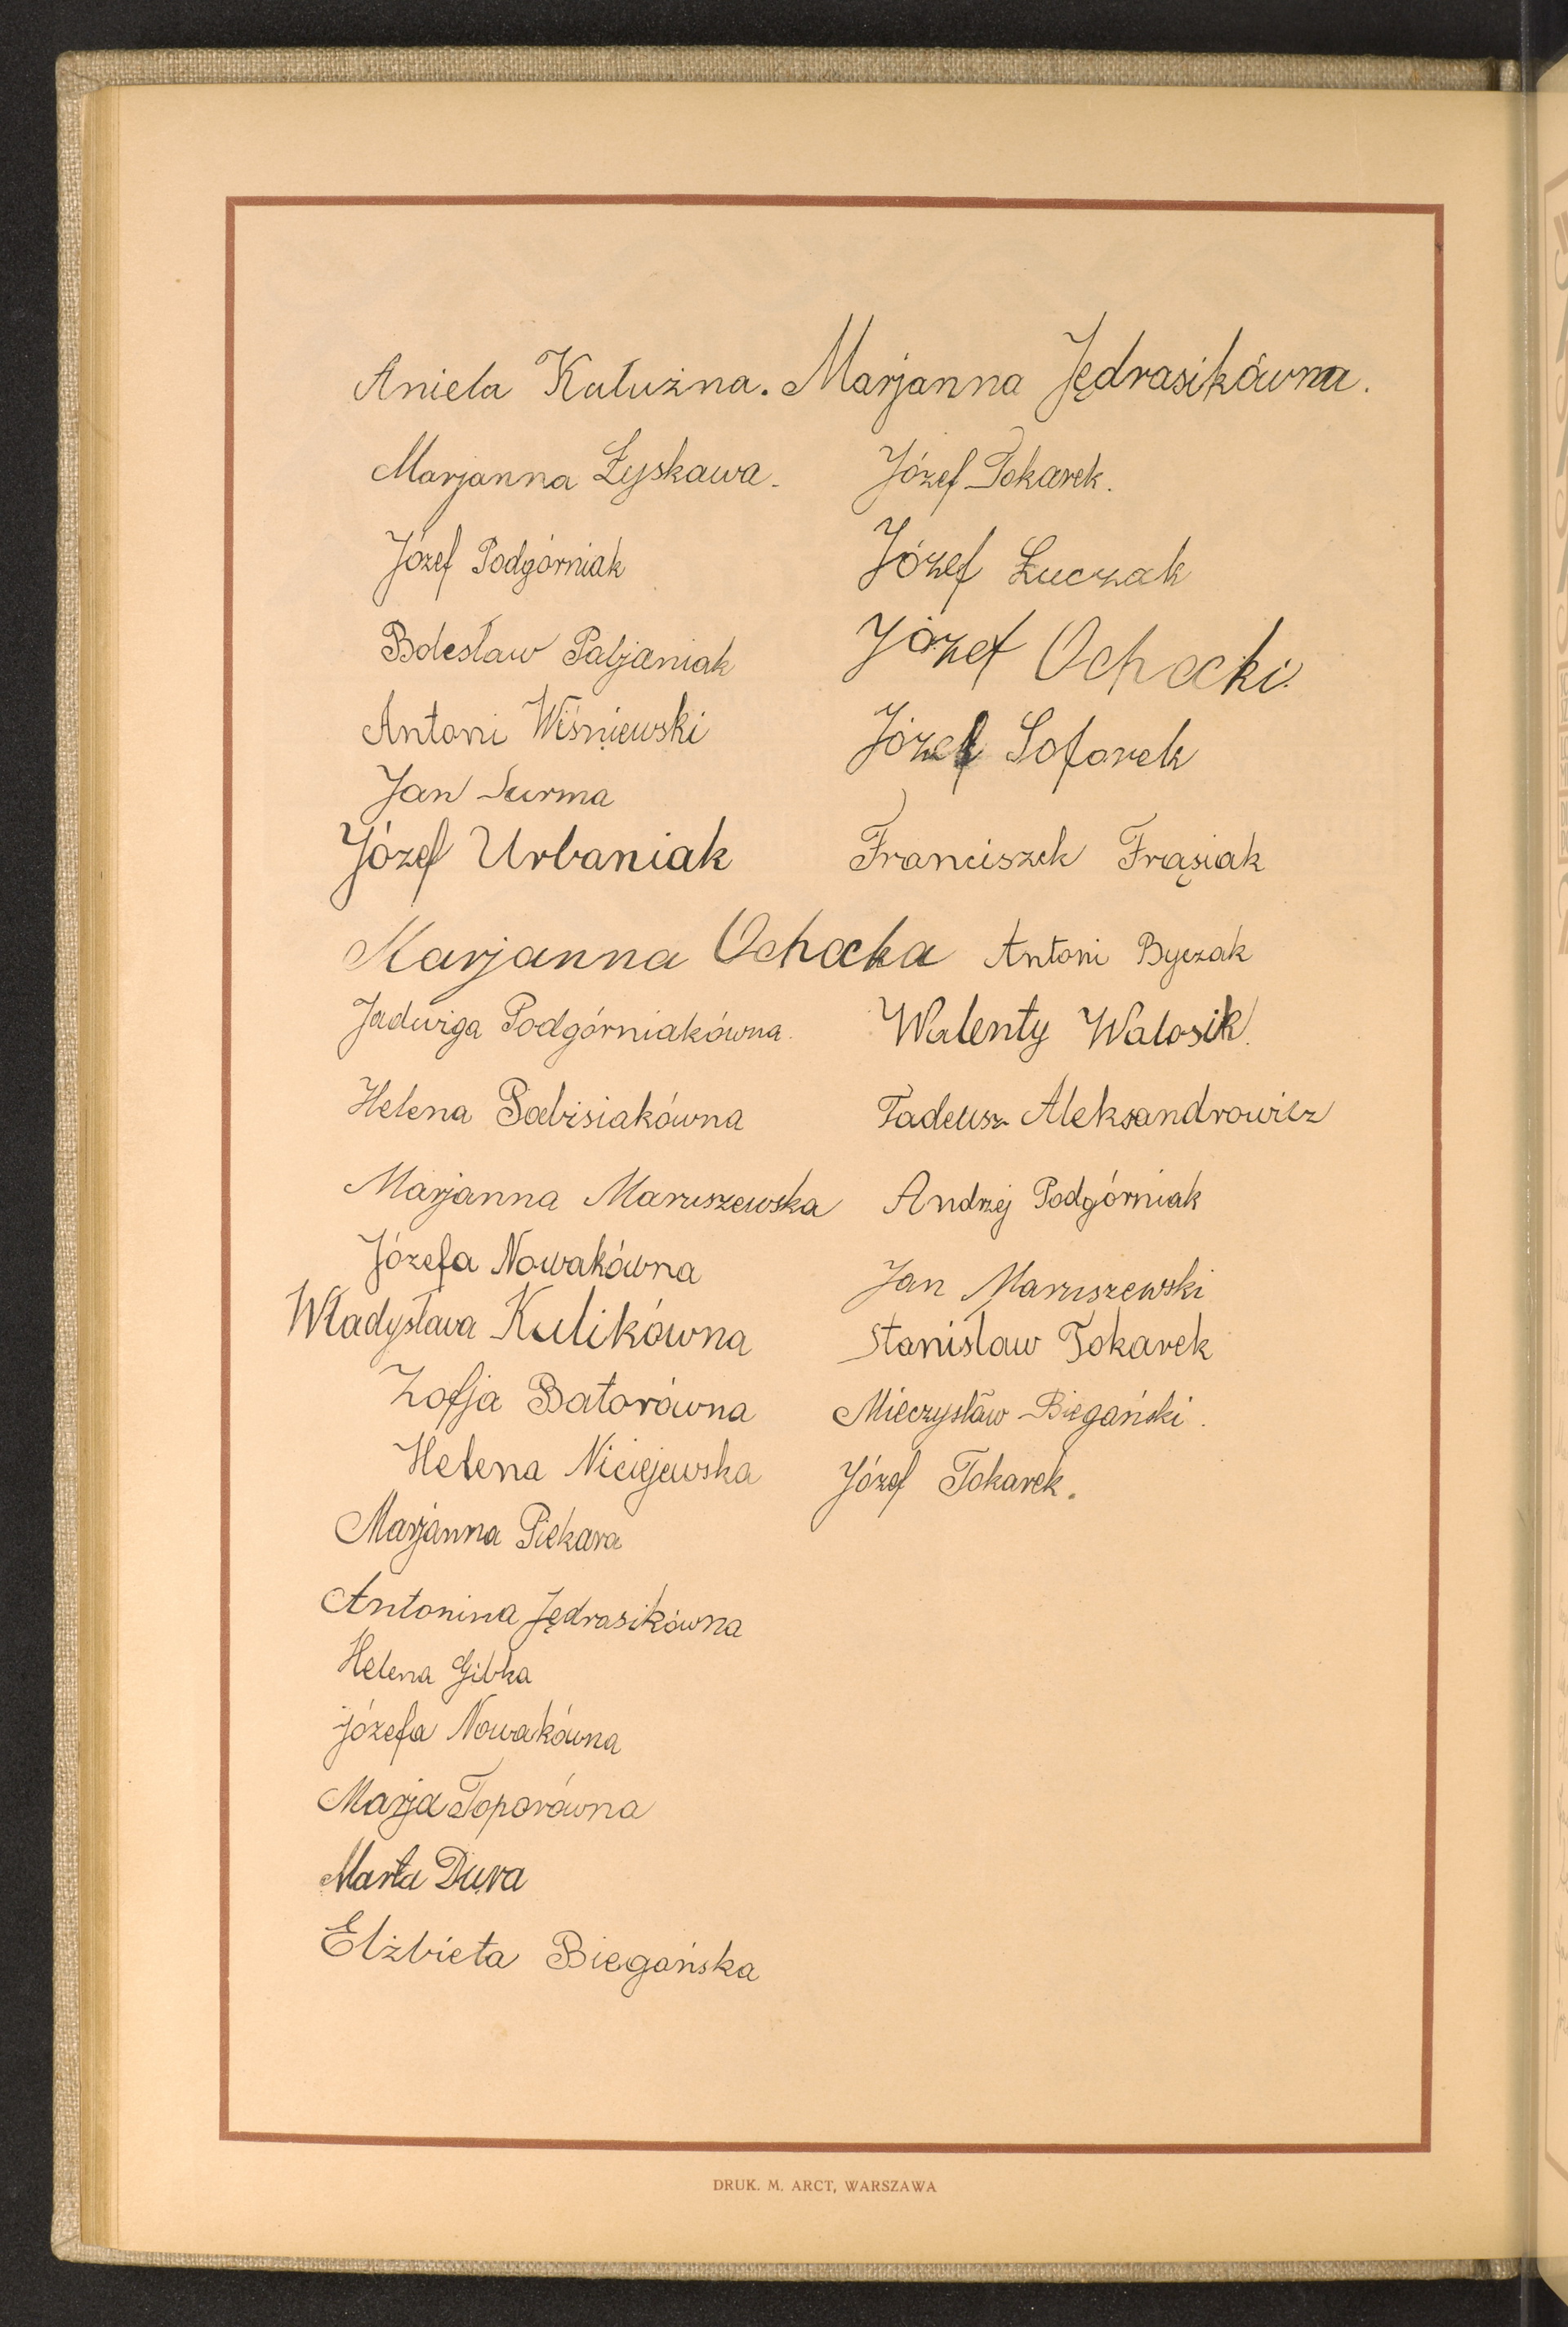 Aniela Kałużna. Marjanna Jędrasikówna.
Marjanna Łyskawa. Józef Tokarek.
Józef Podgórniak Józef Łuczak
Bolesław Pabjaniak Józef Ochocki.
Antoni Wiśniewski Józef Soforek
Jan Surma
Józef Urbaniak Franciszek Frąsiak
Marjanna Ochocka Antoni Byczak
Jadwiga Podgórniakówna. Walenty Walosik.
Helena Pabisiakówna Tadeusz Aleksandrowicz
Marjanna Maruszewska Andrzej Podgórniak
Józefa Nowakówna Jan Maruszewski
Władysława Kulikówna Stanisław Tokarek
Zofja Batorówna Mieczysław Biegański.
Helena Niciejewska Józef Tokarek.
Marjanna Piekara
Antonina Jędrasikówna
Helena Gibka
józefa Nowakówna
Marja Toporówna
Marta Dura
Elżbieta Biegańska
DRUK. M. ARCT, WARSZAWA